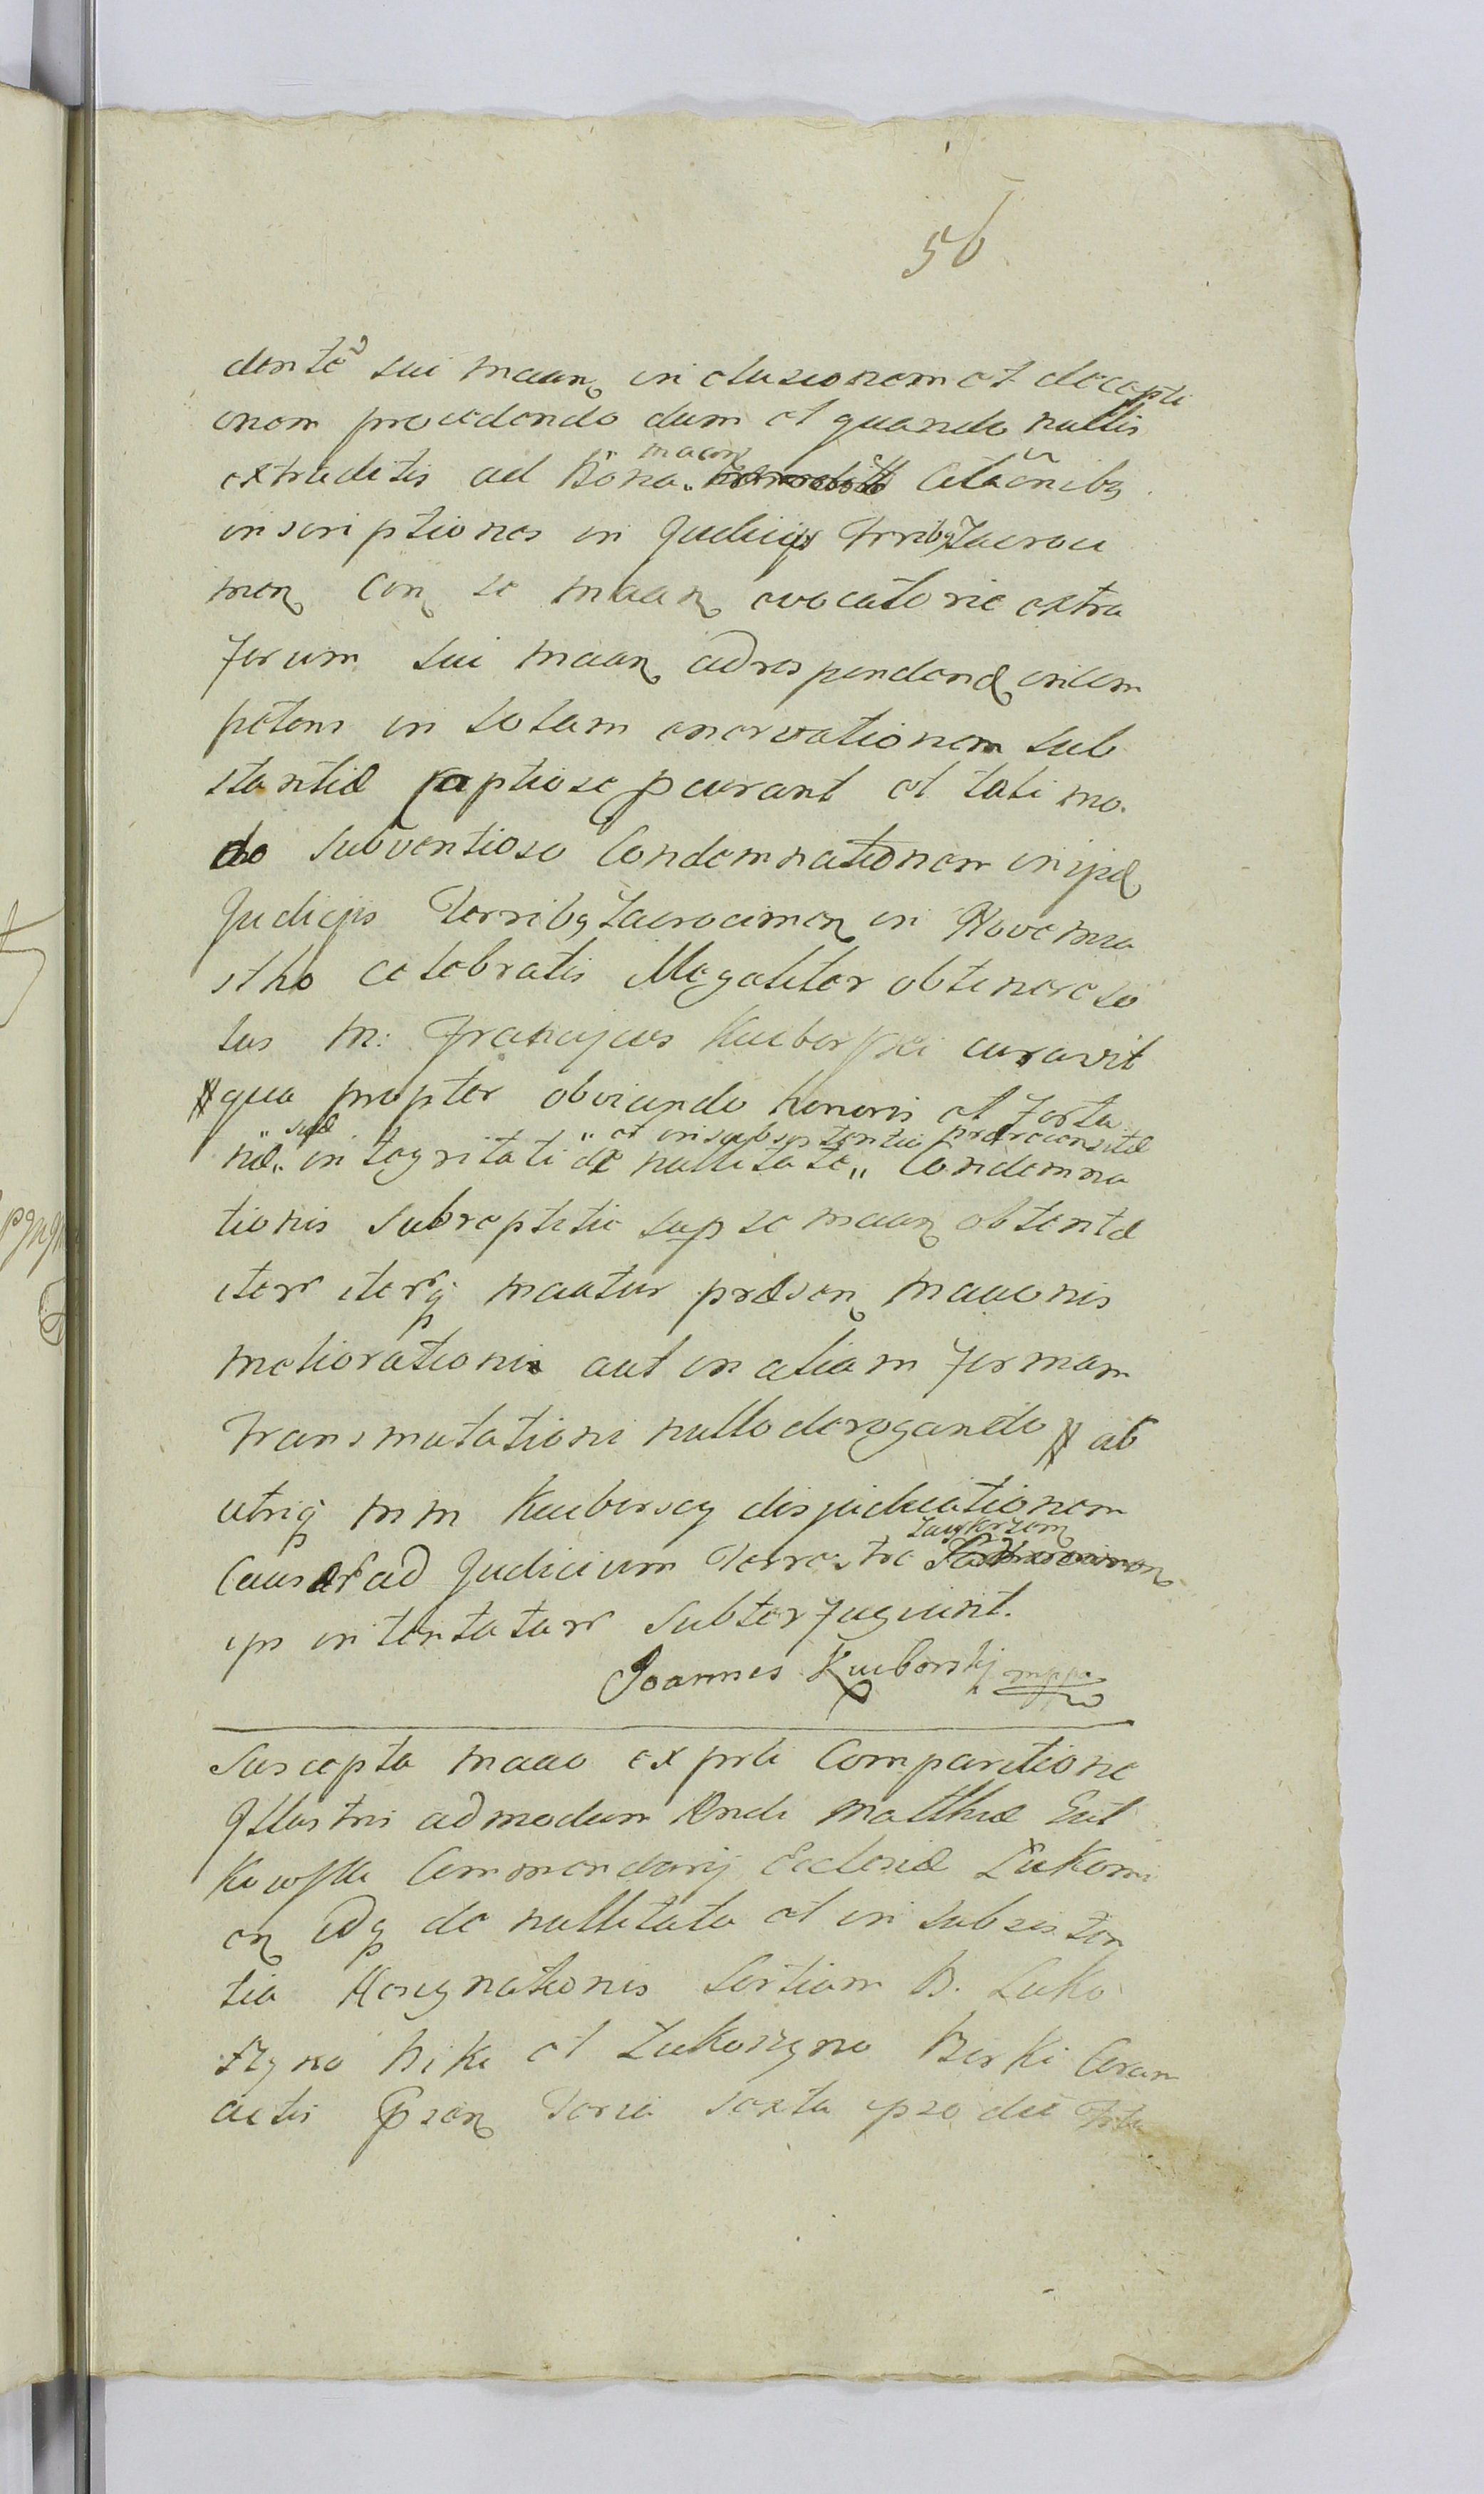 56
dente sui maan in elusionem et decepti
onem procedendo dum et quando nullis
extraditis ad Bona maan Citaõnibq
inscriptiones in Judicijs Trribq Zacroci
men con se maan evocatorie extra
forum sui maan ad respondend incom
petens in totam enervationem sub
stantiæ captiose pcurant et tali mo
do subventiose Condemnationem in ijsd
Judicijs Terribq Zacrocimen in Novemia
sto celebratis Illegaliter obtinere so
lus M: Franciscus Kucborski curavit
qua propter obviando honoris et fortu
suæ et insubsistentia prærecensitæ
næ„ integritati de nullitate„ Condemna
tionis subreptitie sup se maan obtentæ
iterũ iterq maatur præsen maaonis
meliorationi aut in aliam formam
transmutationi nullo derogando ab
utriq MM Kucborscy disjudicationem
Zawkrzen
Causar ad Judicium Terrestre
ips intentatar subterfugiunt.
Joannes Kucborskj mppa
Suscepta maao ex prti Comparitione
Illustris admodum Rndi Matthiæ Sut
kowski Commendarij Ecclesiæ Lukomi
en idq de nullitate et in subsisten
tia Resignationis Sortium B. Luko
et Lukoszyno Borki Coram
actis psen Feria sexta ipso die